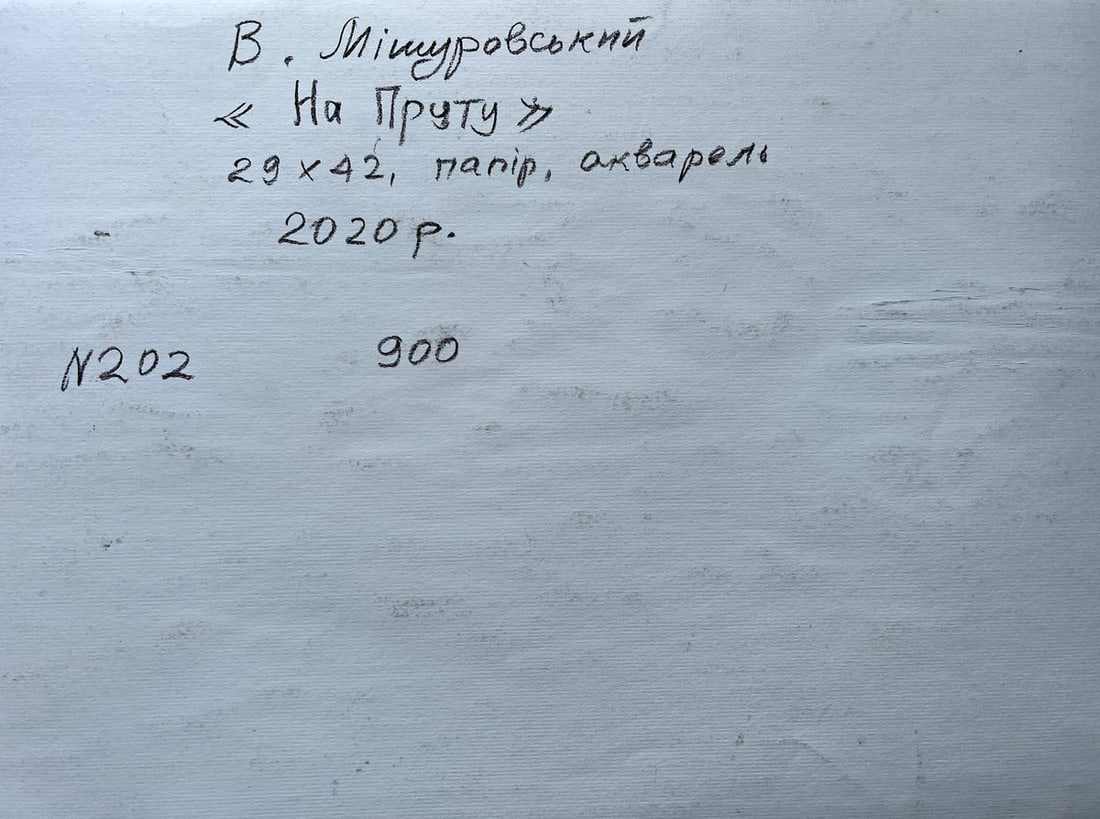 В. Мішуровський
« На Пруту »
29 х 42, папір, акварель
2020 р.
N202 900